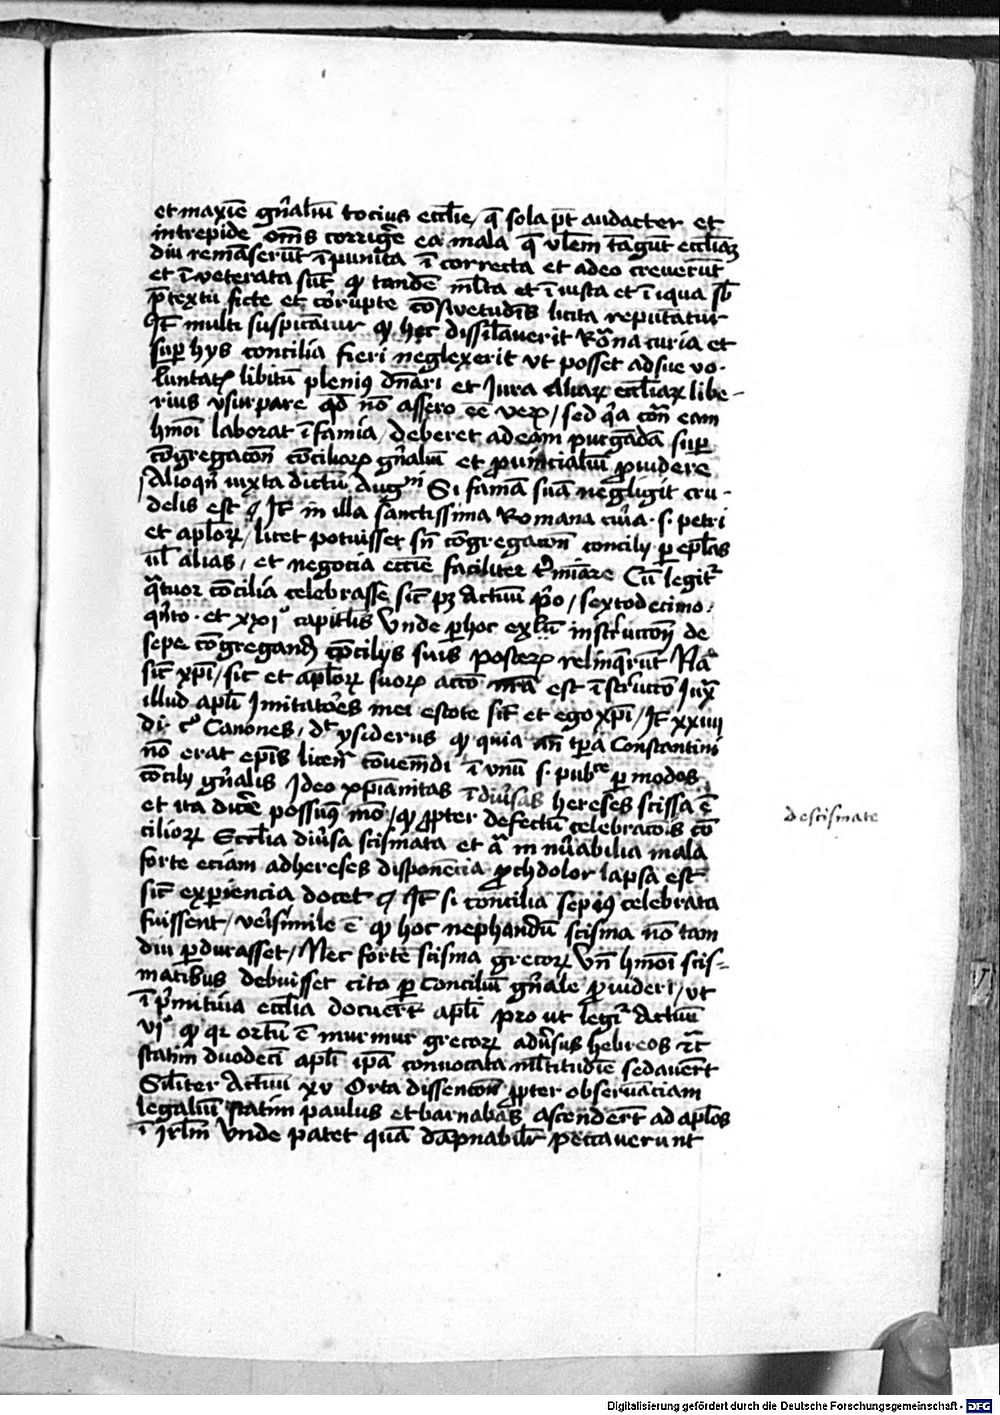 et maxīe gn̄aliū tocius eccl̄ie / q̄ sola pt̄ audacter et
intrepide om̄s corriḡe ea mala q̄ vl̄em tāgūt eccl̄iaꝫ
diu remāserūt īpunita ī correcta et adeo creuerūt
et ī veterata sūt ꝙ tandē ml̄ta et ī iusta et ī iqua sb̄
p̄textu ficte et corrupte cōswetudīs licita reputātur
Jt̄ multi suspicātur ꝙ hoc dissil̄auerit Ro̅na curia et
suꝑ hys concilia fieri neglexerit vt posset ad sue vo-
luntatꝭ libitū pleniꝰ dn̄ari et Jura aliaꝝ eccl̄iaꝝ libe-
rius vsurpare qd̄ nō assero eē veꝝ / sed qͣ con̄ eam
hmōi laborat īfamia / deberet ad eam purgādā suꝑ
cōgregacōn cōcilioꝝ gn̄aliū et ꝓuincialiū ꝓuidere
Alioqn̄ iuxta dictū Augᵐ Si famā suā negligit cru-
delis est Jt̄ in illa sanctissima Romana curia · s · petri
et apl̄oꝝ / licet potuisset sn̄ cōgregacōn concily ꝑ epl̄as
ul̄ alias / et negocia eccīe faciliter t̄mīare Cū legitʳ
qͣtuor cōcilia celebrasse sic̄ pꝫ Actuū pͦ / sextodecimo ·
qn̄to · et xxiº capitl̄is Vnde ꝑ hoc exl̄ū instruccōn de
sepe cōgregand cōcilys suis posteꝝ relinq̄rūt Na
sic̄ xp̄i / sic et apl̄oꝝ suoꝝ acco nr̄a est īstrucco Juxͣ
illud apl̄i Jmitatōes mei estote sic̄ et ego xp̄i / Jt̄ xxiiii
di · cº Canones / dt̄ ysiderus ꝙ quia an̄ tꝑa Constantini
nō erat ep̄is licen̄ cōuenīdi ī vnū s · pubᶜᵉ ꝑ modos
cōcily gn̄alis Jdeo xp̄ianitas ī diūsas hereses scissa ē
et ita dicēe possumꝰ mō / ꝙ ꝓpter defectū celebracōis cō
cilioꝝ Eccl̄ia diūsa scismata et āͣ innūabilia mala
forte eciam ad hereses disponencia ꝓch dolor lapsa est
sic̄ exꝑiencia docet Jt̄ si concilia sepiꝰ celebrata
fuissent / verisimile ē ꝙ hoc nephandū scisma nō tam
diu ꝑdurasset / Nec forte scisma grecoꝝ Vn̄ hmōi scis-
matibus debuisset cito ꝑ conciliū gn̄ale ꝓuideri / vt
ī pͥmitiuia eccl̄ia docuert̄ apl̄i pro ut legiʳ Actuū
viº ꝙ qr ortū ē murmur grecoꝝ adūsus hebreos rc̄
statim duodecī apl̄i ip̄a conuocata ml̄titudīe sedauert̄
Sil̄iter Actuū xv Orta dissencōn ꝓpter obseruāciam
legaliū statim paulus et barnabas ascendert̄ ad apl̄os
ī Jrl̄m Vnde patet quā dāpnabilr̄ peccauerunt
de scismate
Digitalisierung gefördert durch die Deutsche Forschungsgemeinschaft - DFG